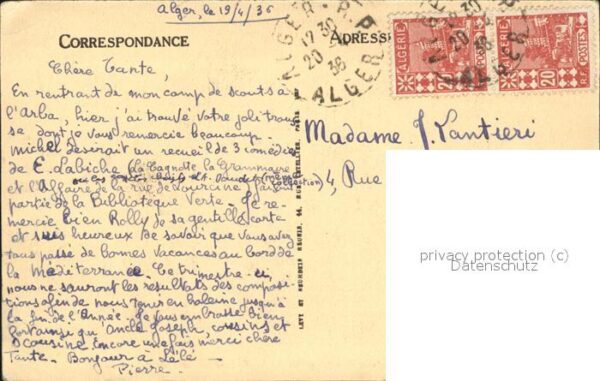 Alger, le 19/4/36
CORRESPONDANCE
ADRESSE
ALGER R.P.
17 30
20
36
ALGER
ALGERIE
20
POSTES
R.F.
ALGERIE
20
POSTES
R.F.
Chère Tante,
En rentrant de mon camp de scouts à
l'Arba, hier j'ai trouvé votre joli trous
se dont je vous remercie beaucoup.
Michel désirait un recueil de 3 comédies
de E. Labiche (La Cagnotte, la Grammaire
et l'Affaire de la rue de Lourcine) faisant
partie de la Bibliotèque Verte. Je re-
mercie bien Rolly de sa gentille carte
et suis heureux de savoir que vous avez
tous passé de bonnes vacances au bord de
la Méditerranée. Ce trimestre-ci,
nous ne saurons les résultats des composi-
tions afin de nous tenir en haleine jusqu'à
la fin de l'Année. Je vous embrasse bien
fort ainsi qu'Oncle Joseph, cousins et
cousine. Encore une fois merci chère
Tante. Bonjour à Lélé
Pierre.
Madame J. Vantieri
4, Rue
LEVY ET NEURDEIN REUNIS, 44, RUE LETELLIER, PARIS
privacy protection (c)
Datenschutz